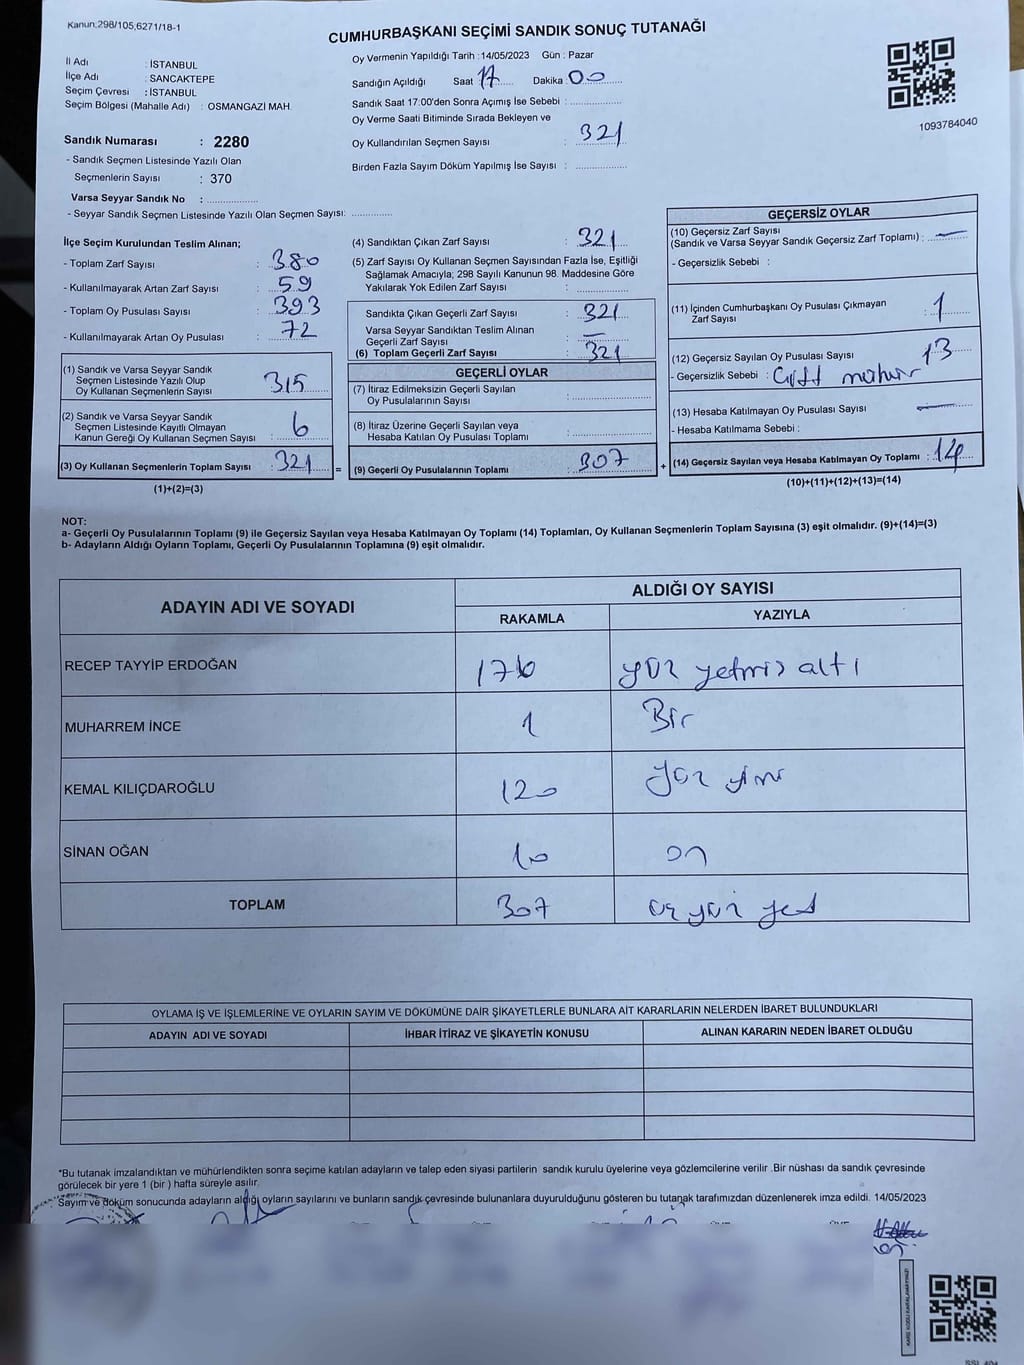 Kanun:298/105,6271/18-1
CUMHURBAŞKANI SEÇİMİ SANDIK SONUÇ TUTANAĞI
İl Adı : İSTANBUL
İlçe Adı : SANCAKTEPE
Seçim Çevresi : İSTANBUL
Seçim Bölgesi (Mahalle Adı) : OSMANGAZİ MAH.
Sandık Numarası : 2280
- Sandık Seçmen Listesinde Yazılı Olan
Seçmenlerin Sayısı : 370
Varsa Seyyar Sandık No : ................
- Seyyar Sandık Seçmen Listesinde Yazılı Olan Seçmen Sayısı: ..............
Oy Vermenin Yapıldığı Tarih : 14/05/2023 Gün : Pazar
Sandığın Açıldığı Saat 17 Dakika 00
Sandık Saat 17:00'den Sonra Açımış İse Sebebi : ..................
Oy Verme Saati Bitiminde Sırada Bekleyen ve
Oy Kullandırılan Seçmen Sayısı : 321
Birden Fazla Sayım Döküm Yapılmış İse Sayısı : ..................
1093784040
İlçe Seçim Kurulundan Teslim Alınan;
- Toplam Zarf Sayısı : 380
- Kullanılmayarak Artan Zarf Sayısı : 59
- Toplam Oy Pusulası Sayısı : 393
- Kullanılmayarak Artan Oy Pusulası : 72
(1) Sandık ve Varsa Seyyar Sandık
Seçmen Listesinde Yazılı Olup
Oy Kullanan Seçmenlerin Sayısı : 315
(2) Sandık ve Varsa Seyyar Sandık
Seçmen Listesinde Kayıtlı Olmayan
Kanun Gereği Oy Kullanan Seçmen Sayısı : 6
(3) Oy Kullanan Seçmenlerin Toplam Sayısı : 321 =
(1)+(2)=(3)
(4) Sandıktan Çıkan Zarf Sayısı : 321
(5) Zarf Sayısı Oy Kullanan Seçmen Sayısından Fazla İse, Eşitliği
Sağlamak Amacıyla; 298 Sayılı Kanunun 98. Maddesine Göre
Yakılarak Yok Edilen Zarf Sayısı : ..................
Sandıkta Çıkan Geçerli Zarf Sayısı : 321
Varsa Seyyar Sandıktan Teslim Alınan
Geçerli Zarf Sayısı : —
(6) Toplam Geçerli Zarf Sayısı : 321
GEÇERLİ OYLAR
(7) İtiraz Edilmeksizin Geçerli Sayılan
Oy Pusulalarının Sayısı : ..................
(8) İtiraz Üzerine Geçerli Sayılan veya
Hesaba Katılan Oy Pusulası Toplamı : ..................
(9) Geçerli Oy Pusulalarının Toplamı : 307 +
GEÇERSİZ OYLAR
(10) Geçersiz Zarf Sayısı
(Sandık ve Varsa Seyyar Sandık Geçersiz Zarf Toplamı) : —
- Geçersizlik Sebebi :
(11) İçinden Cumhurbaşkanı Oy Pusulası Çıkmayan
Zarf Sayısı : 1
(12) Geçersiz Sayılan Oy Pusulası Sayısı : 13
- Geçersizlik Sebebi : Çift mühür
(13) Hesaba Katılmayan Oy Pusulası Sayısı : —
- Hesaba Katılmama Sebebi :
(14) Geçersiz Sayılan veya Hesaba Katılmayan Oy Toplamı : 14
(10)+(11)+(12)+(13)=(14)
NOT:
a- Geçerli Oy Pusulalarının Toplamı (9) ile Geçersiz Sayılan veya Hesaba Katılmayan Oy Toplamı (14) Toplamları, Oy Kullanan Seçmenlerin Toplam Sayısına (3) eşit olmalıdır. (9)+(14)=(3)
b- Adayların Aldığı Oyların Toplamı, Geçerli Oy Pusulalarının Toplamına (9) eşit olmalıdır.
ADAYIN ADI VE SOYADI ALDIĞI OY SAYISI
RAKAMLA YAZIYLA
RECEP TAYYİP ERDOĞAN 176 yüz yetmiş altı
MUHARREM İNCE 1 Bir
KEMAL KILIÇDAROĞLU 120 yüz yirmi
SİNAN OĞAN 10 on
TOPLAM 307 üç yüz yedi
OYLAMA İŞ VE İŞLEMLERİNE VE OYLARIN SAYIM VE DÖKÜMÜNE DAİR ŞİKAYETLERLE BUNLARA AİT KARARLARIN NELERDEN İBARET BULUNDUKLARI
ADAYIN ADI VE SOYADI İHBAR İTİRAZ VE ŞİKAYETİN KONUSU ALINAN KARARIN NEDEN İBARET OLDUĞU
*Bu tutanak imzalandıktan ve mühürlendikten sonra seçime katılan adayların ve talep eden siyasi partilerin sandık kurulu üyelerine veya gözlemcilerine verilir .Bir nüshası da sandık çevresinde
görülecek bir yere 1 (bir ) hafta süreyle asılır.
Sayım ve döküm sonucunda adayların aldığı oyların sayılarını ve bunların sandık çevresinde bulunanlara duyurulduğunu gösteren bu tutanak tarafımızdan düzenlenerek imza edildi. 14/05/2023